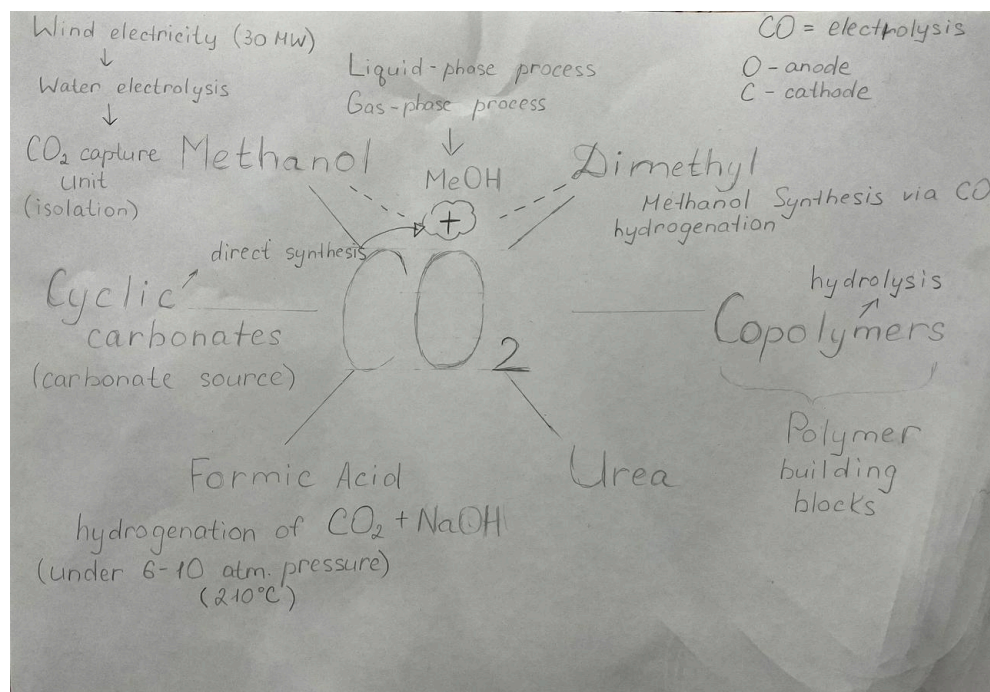 Wind electricity (30 MW)
↓
Water electrolysis
↓
CO₂ capture
unit
(isolation)
Methanol
Liquid-phase process
Gas-phase process
↓
MeOH
+
CO = electrolysis
O - anode
C - cathode
Dimethyl
Methanol Synthesis via CO
hydrogenation
direct synthesis
Cyclic
carbonates
(carbonate source)
CO₂
hydrolysis
Copolymers
Polymer
building
blocks
Formic Acid
hydrogenation of CO₂ + NaOH
(under 6-10 atm. pressure)
(210°C)
Urea